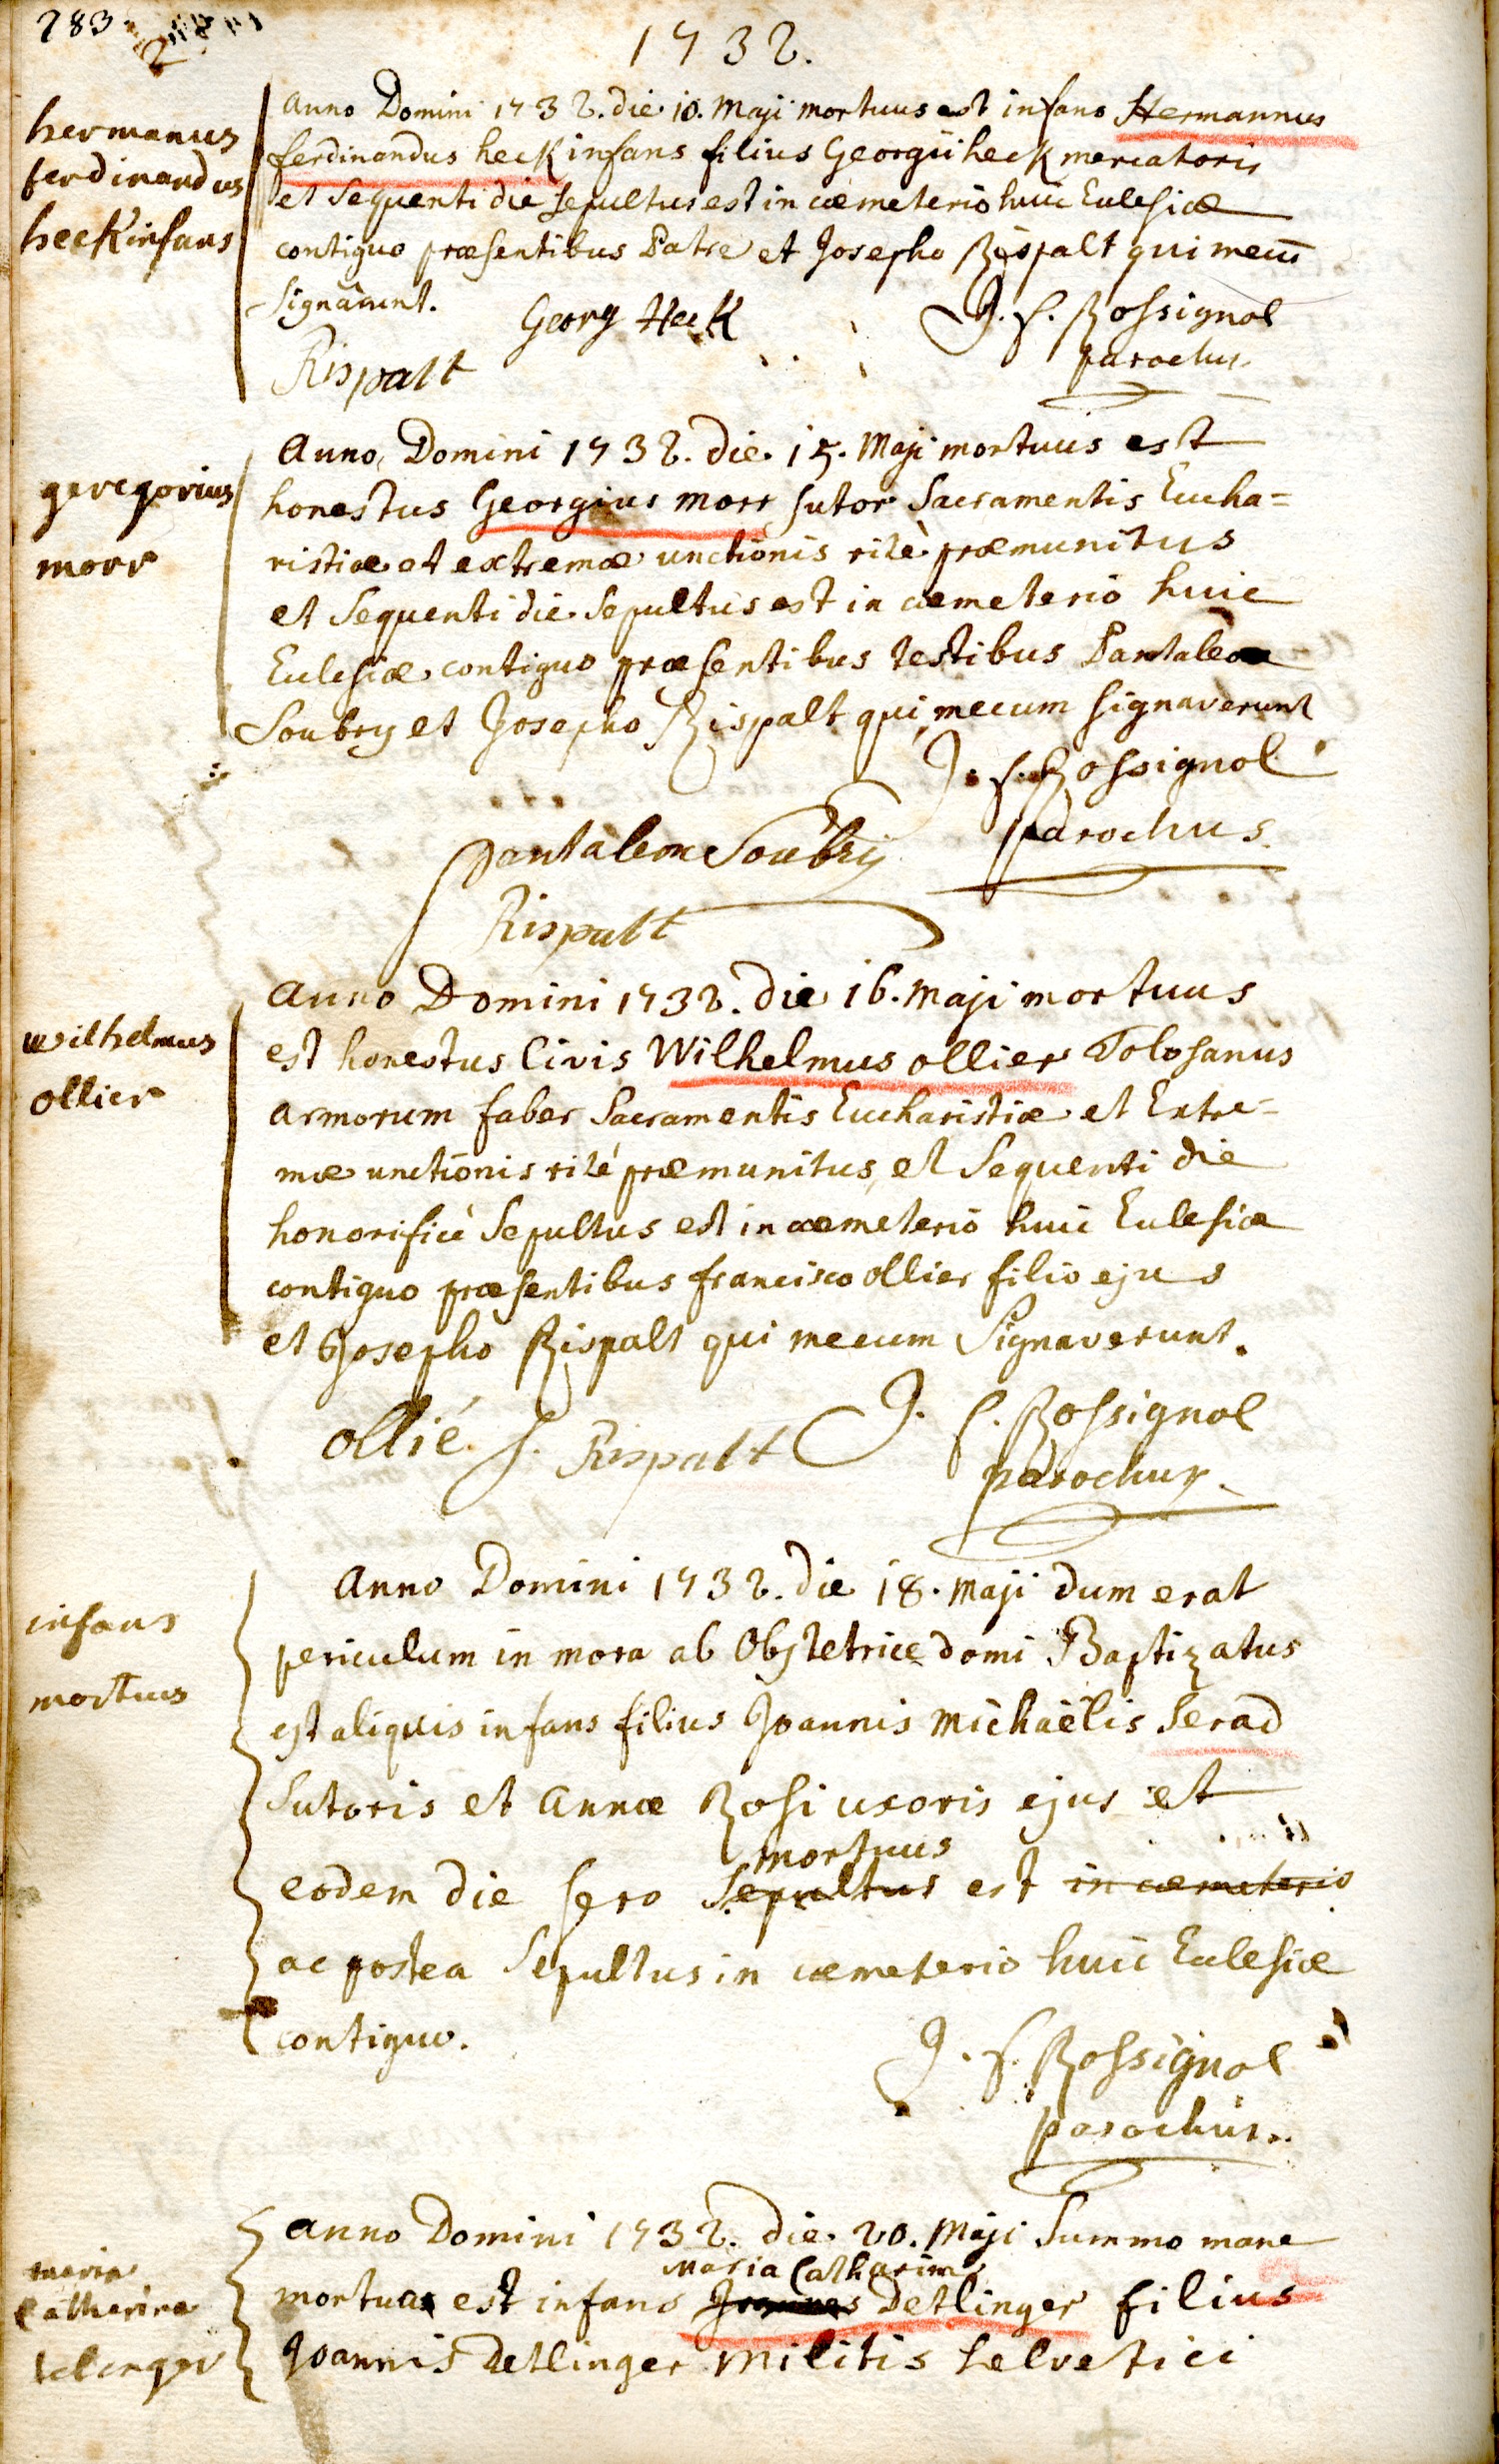 283
1732.
hermanus
ferdinandus
heck infans
Anno Domini 1732. die 10. Maji mortuus est infans Hermannus
ferdinandus heck infans filius Georgii heck mercatoris
et Sequenti die sepultus est in cœmeterio huic Ecclesiæ
contiguo præsentibus Patre et Josepho Rispalt qui mecū
signârunt.
Georg Heck
J. f. Rossignol
parochus
Rispalt
geregorius
morr
Anno Domini 1732. die 15. Maji mortuus est
honestus Georgius morr sutor Sacramentis Eucha=
ristiæ et extremæ unctionis ritè præmunitus
et Sequenti die Sepultus est in cœmeterio huic
Ecclesiæ contiguo præsentibus testibus Pantaleone
Soubry et Josepho Rispalt qui mecum signaverunt
J. f. Rossignol
parochus
pantaleon Soubry
Rispalt
wilhelmus
ollier
Anno Domini 1732. die 16. Maji mortuus
est honestus Civis Wilhelmus ollier Tolosanus
armorum faber Sacramentis Eucharistiæ et Extre=
mæ unctionis rité præmunitus, et Sequenti die
honorificè Sepultus est in cœmeterio huic Ecclesiæ
contiguo præsentibus francisco ollier filio ejus
et Josepho Rispalt qui mecum Signaverunt.
ollié J. Rispalt
J. f. Rossignol
parochus
infans
mortuus
Anno Domini 1732. die 18. Maji dum erat
periculum in mora ab Obstetrice domi Baptizatus
est aliquis infans filius Joannis Michaëlis Serad
Sutoris et Annæ Rosi uxoris ejus et
mortuus
eodem die sero Sepultus est in cœmeterio
ac postea Sepultus in cœmeterio huic Ecclesiæ
contiguo.
J. f. Rossignol
parochus
maria
Catharina
telinger
Anno Domini 1732. die 20. Maji Summo mane
Maria Catharina
mortua est infans Joannes Detlinger filius
Joannis Detlinger Militis helvetici